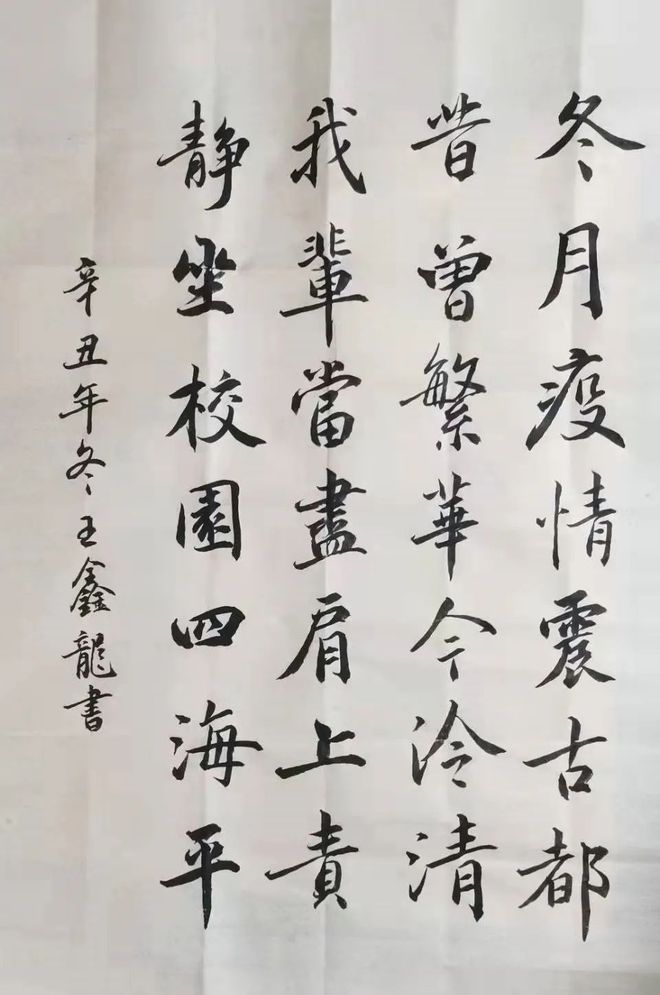 冬月疫情震古都
昔曾繁華今泠清
我輩當盡肩上責
靜坐校園四海平
辛丑年冬王鑫龍書